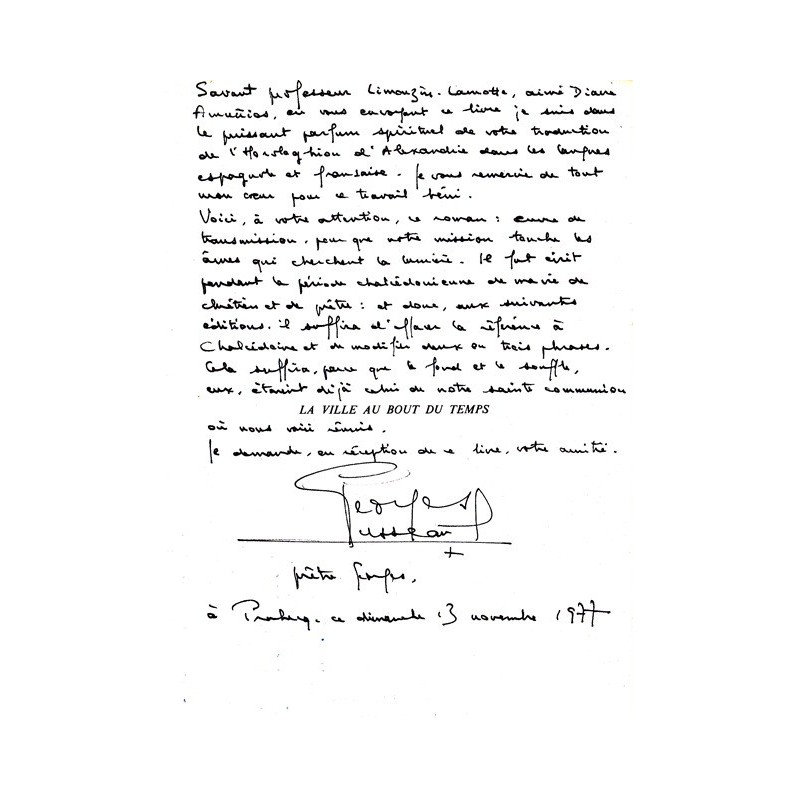 Savant professeur Limouzin-Lamothe, aimé Diacre
en vous envoyant ce livre je suis dans
le puissant parfum spirituel de votre traduction
de l'Horologhion d'Alexandrie dans les langues
espagnole et française. Je vous remercie de tout
mon cœur pour ce travail béni.
Voici, à votre attention, ce roman : œuvre de
transmission, pour que notre mission touche les
âmes qui cherchent la lumière. Il fut écrit
pendant la période chalcédonienne de ma vie de
chrétien et de prêtre : et donc, aux suivantes
éditions, il suffira d'effacer la référence à
Chalcédoine et de modifier deux ou trois phrases.
Cela suffira, parce que le fond et le souffle,
eux, étaient déjà celui de notre sainte communion
LA VILLE AU BOUT DU TEMPS
où nous voici réunis.
Je demande, en réception de ce livre, votre amitié.
Georges
prêtre Georges.
à ce dimanche 13 novembre 1977